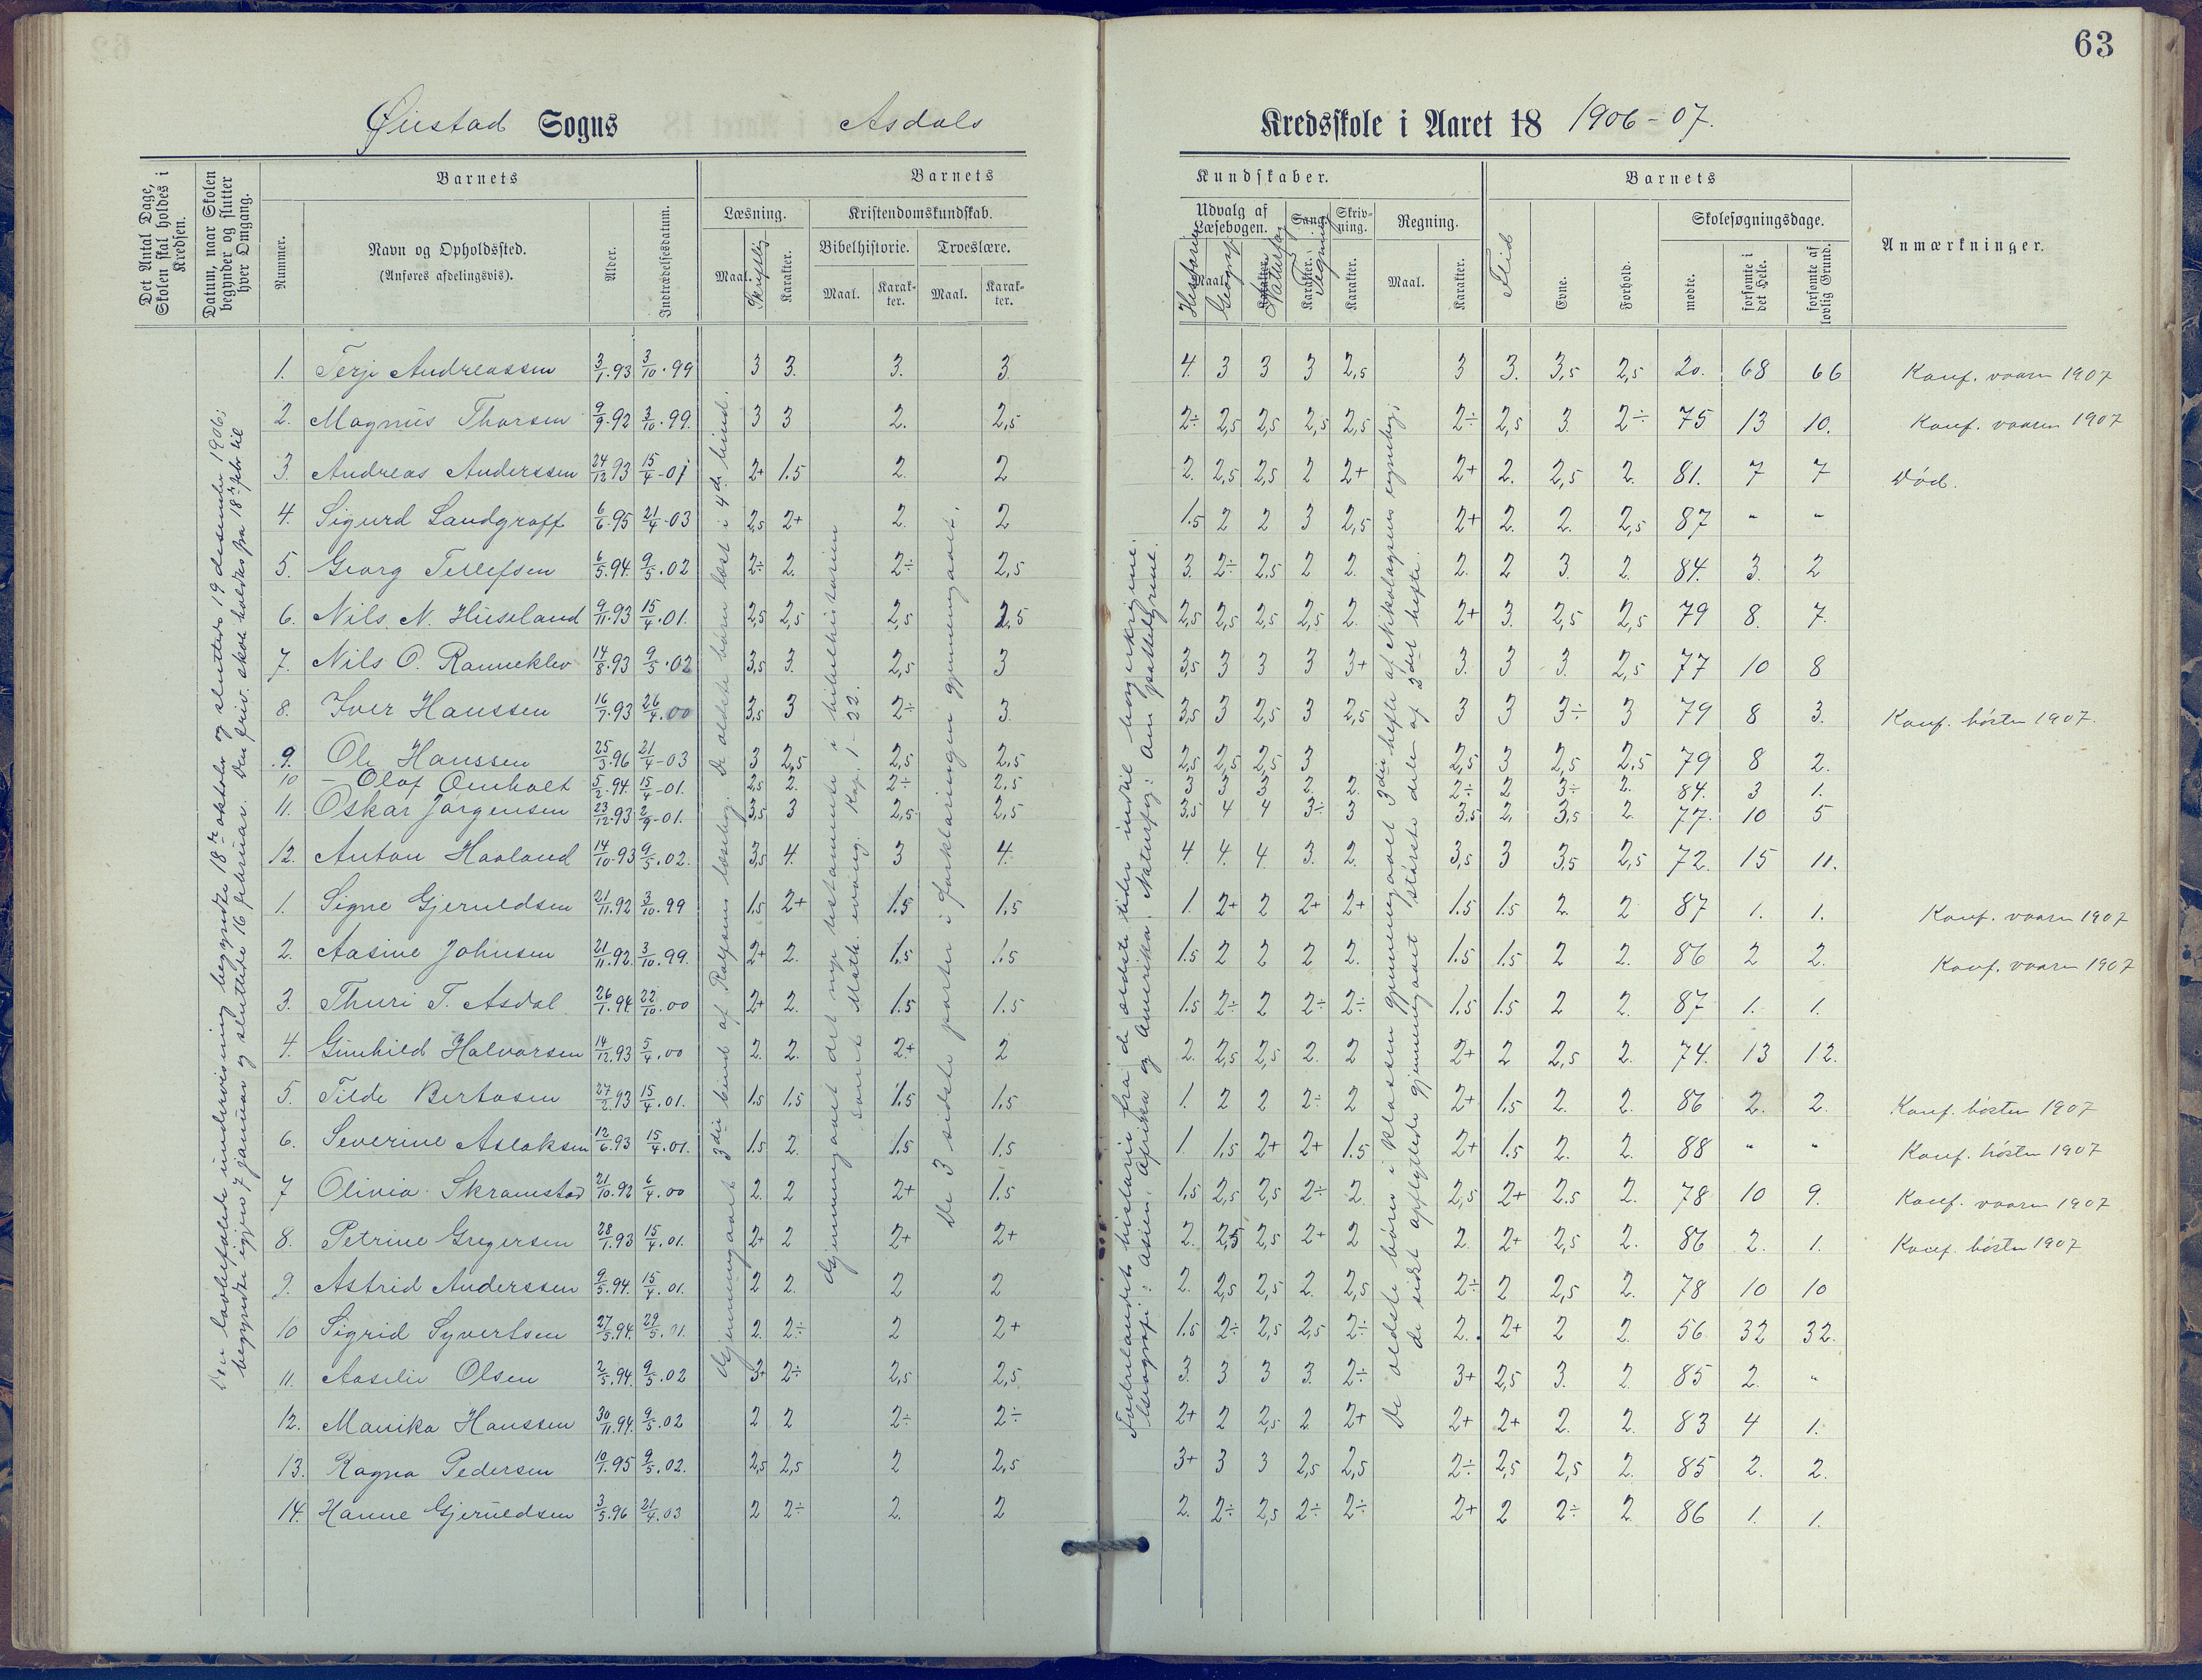 63
Øiestad Sogns Asdals Kredsskole i Aaret 18 1906-07.
Det Antal Dage, Skolen skal holdes i Kredsen.
Datum, naar Skolen begynder og slutter hver Omgang.
Nummer.
Barnets
Navn og Opholdssted.
(Anføres afdelingsvis).
Alder.
Indtrædelsesdatum.
Barnets Kundskaber.
Læsning.
Maal. Skriftlig Karakter.
Kristendomskundskab.
Bibelhistorie. Troeslære.
Maal. Karakter. Maal. Karakter.
Udvalg af Læsebogen.
Historie Maal. Geografi Karakter. Naturfag
Sang. Karakter. Tegning
Skrivning. Karakter.
Regning.
Maal. Karakter.
Barnets
Flid Evne. Forhold.
Skolesøgningsdage.
mødte. forsømte i det Hele. forsømte af lovlig Grund.
Anmærkninger.
Den lovbefalede undervisning begyndte 18de oktober og sluttede 19 desember 1906;
begyndte igjen 7 januar og sluttede 16 februar. Den friv. skole holdtes fra 18de febr. til
Gjennemgaaet 3die bind af Rolfsens læsebog. De ældste børn læst i 4de bind.
Gjennemgaaet det nye testamente i bibelhistorien
samt Math. evang. Kap. 1-22.
De 3 sidste parter i forklaringen gjennemgaaet.
Fædrelandets historie fra de ældste tider indtil borgerkrigene.
Geografi: Asien, Afrika og Amerika. Naturfag: Om pattedyrene.
De ældste børn i klassen gjennemgaaet 3die hefte af Nikolaysens regnebog;
de sidst opflyttede gjennemgaaet største delen af 2det hefte.
1. Terje Andreassen 3/1.93 3/10.99 3 3. 3. 3. 4. 3 3 3 2,5 3 3. 3,5 2,5 20. 68 66 Konf. vaaren 1907
2. Magnus Thorsen 9/9.92 3/10.99. 3 3 2. 2,5 2÷ 2,5 2,5 2,5 2,5 2÷ 2,5 3. 2÷ 75 13 10. Konf. vaaren 1907
3. Andreas Anderssen 24/12 93 15/4-01 2+ 1.5 2. 2 2. 2,5 2,5 2 2+ 2+ 2. 2,5 2. 81. 7 7 Død.
4. Sigurd Landgraff 6/6.95 21/4-03 2,5 2+ 2. 2 1.5 2 2 3 2,5 2+ 2. 2. 2,5 87 " "
5. Georg Tellefsen 6/5.94. 9/5.02 2÷ 2. 2÷ 2,5 3. 2÷ 2,5 2 2. 2. 2 3. 2. 84. 3. 2
6. Nils N. Huseland 9/11.93 15/4.01. 2,5 2,5 2,5 2,5 2,5 2,5 2,5 2,5 2. 2+ 3. 2,5 2,5 79 8. 7.
7. Nils O. Ranneklev 14/8.93 9/5.02 3,5 3. 2,5 3 3,5 3 3 3 3+ 3. 3 3. 2,5 77 10 8
8. Iver Hanssen 16/7.93 26/4.00 3,5 3 2÷ 3. 3,5 3 2,5 3 2,5 3 3 3÷ 3 79 8 3. Konf. høsten 1907.
9. Ole Hanssen 25/3.96 21/4-03 3 2,5 2,5 2,5 2,5 2,5 2,5 3 2,5 3 2,5 2.5 79 8 2.
10 - Olaf Omholt 5/2.94. 15/4-01. 2,5 2. 2÷ 2.5 3 3 3 2 2. 2÷ 2 3÷ 2. 84. 3 1.
11. Oskar Jørgensen 23/12.93 2/9-01. 3,5 3 2,5 2,5 3,5 4 4 3÷ 3 3.5 2. 3,5 2. 77. 10 5
12. Anton Haaland 14/10.93 9/5.02. 3,5 4. 3 4. 4 4. 4 3. 2. 3,5 3 3,5 2,5 72. 15 11.
1. Signe Gjeruldsen 21/11.92 3/10.99 1.5 2+ 1.5 1.5 1. 2+ 2 2+ 2+ 1.5 1.5 2. 2 87 1. 1. Konf. vaaren 1907
2. Aasine Johnsen 21/11.92. 3/10.99. 2+ 2. 1.5 1.5 1.5 2 2 2 2. 1.5 1.5 2 2. 86 2 2. Konf. vaaren 1907
3. Thuri T. Asdal 26/7.94. 22/10.00 2+ 2. 1.5 1.5 1.5 2÷ 2 2÷ 2÷ 1.5 1.5 2 2. 87 1. 1.
4. Gunhild Halvorsen 14/12.93 5/4.00 2. 2. 2+ 2 2. 2,5 2,5 2. 2 2+ 2 2,5 2. 74. 13 12.
5. Tilde Bertosen 27/2.93 15/4.01. 1.5 1.5 1.5 1.5 1. 2 2 2÷ 2 2+ 1.5 2. 2. 86 2. 2. Konf. høsten 1907
6. Severine Aslaksen 12/6.93 15/4.01. 1.5 2. 1.5 1.5 1 1.5 2+ 2+ 1.5 2+ 1.5 2. 2. 88 " " Konf. høsten 1907
7 Olivia Skramstad 21/10.92 6/4.00 2. 2 2+ 1.5 1.5 2,5 2,5 2÷ 2 2,5 2+ 2.5 2. 78 10 9. Konf. vaaren 1907
8. Petrine Gregersen 28/1.93 15/4.01. 2+ 2 2+ 2+ 2. 2,5 2,5 2+ 2 2 2+ 2,5 2. 86 2. 1. Konf. høsten 1907
9. Astrid Anderssen 9/5.94. 15/4.01. 2 2. 2 2 2. 2,5 2,5 2. 2,5 2÷ 2 2,5 2. 78 10 10
10 Sigrid Syvertsen 27/5.94. 29/5.01. 2. 2÷ 2 2+ 1.5 2÷ 2,5 2,5 2÷ 2. 2+ 2 2. 56 32 32.
11. Aaselie Olsen 2/5.94. 9/5.02 3+ 2÷ 2,5 2,5 3. 3. 3 3. 2÷ 3+ 2,5 3. 2. 85 2. "
12. Marika Hanssen 30/11.94. 9/5.02 2 2 2÷ 2÷ 2+ 2 2,5 2 2+ 2+ 2+ 2. 2. 83 4 1.
13. Ragna Pedersen 10/1.95 9/5.02. 2,5 2,5 2 2,5 3+ 3 3 2,5 2,5 2÷ 2,5 2,5 2. 85 2. 2.
14. Hanne Gjeruldsen 3/5.96 21/4.03 2 2÷ 2. 2 2. 2÷ 2,5 2÷ 2÷ 2+ 2 2÷ 2. 86 1. 1.